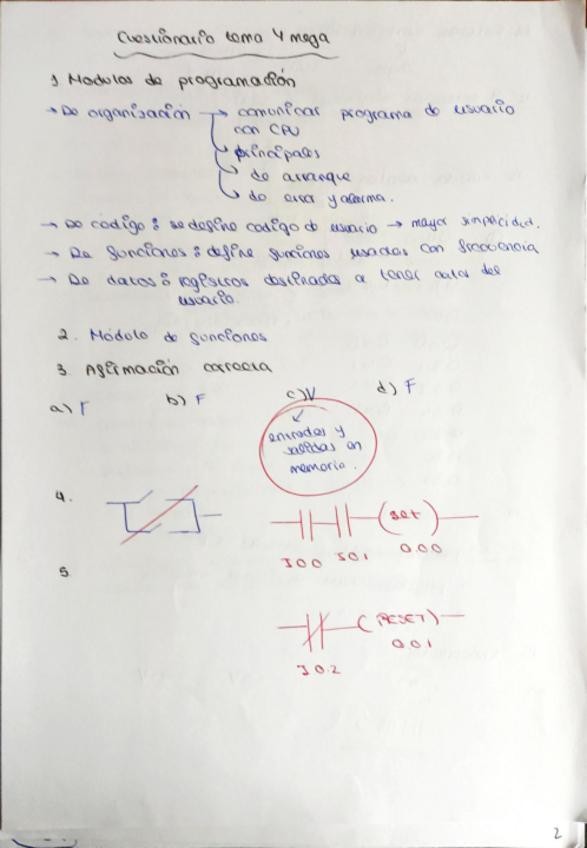 Cuestionario tema 4 mega
1 Modulos de programación
→ De organización → comunicar programa de usuario
con CPU
principales
de arranque
de error y alarma.
→ De código : se define codigo de usuario → mayor simplicidad.
→ De funciones : define funciones usadas con frecuencia
→ De datos : registros destinados a tener datos del
usuario.
2. Módulo de funciones
3. Afirmación correcta
a) F b) F c) V d) F
entradas y
salidas en
memoria.
4.
(set)
I00 I01 0.00
5.
(RESET)
0.01
I0.2
2